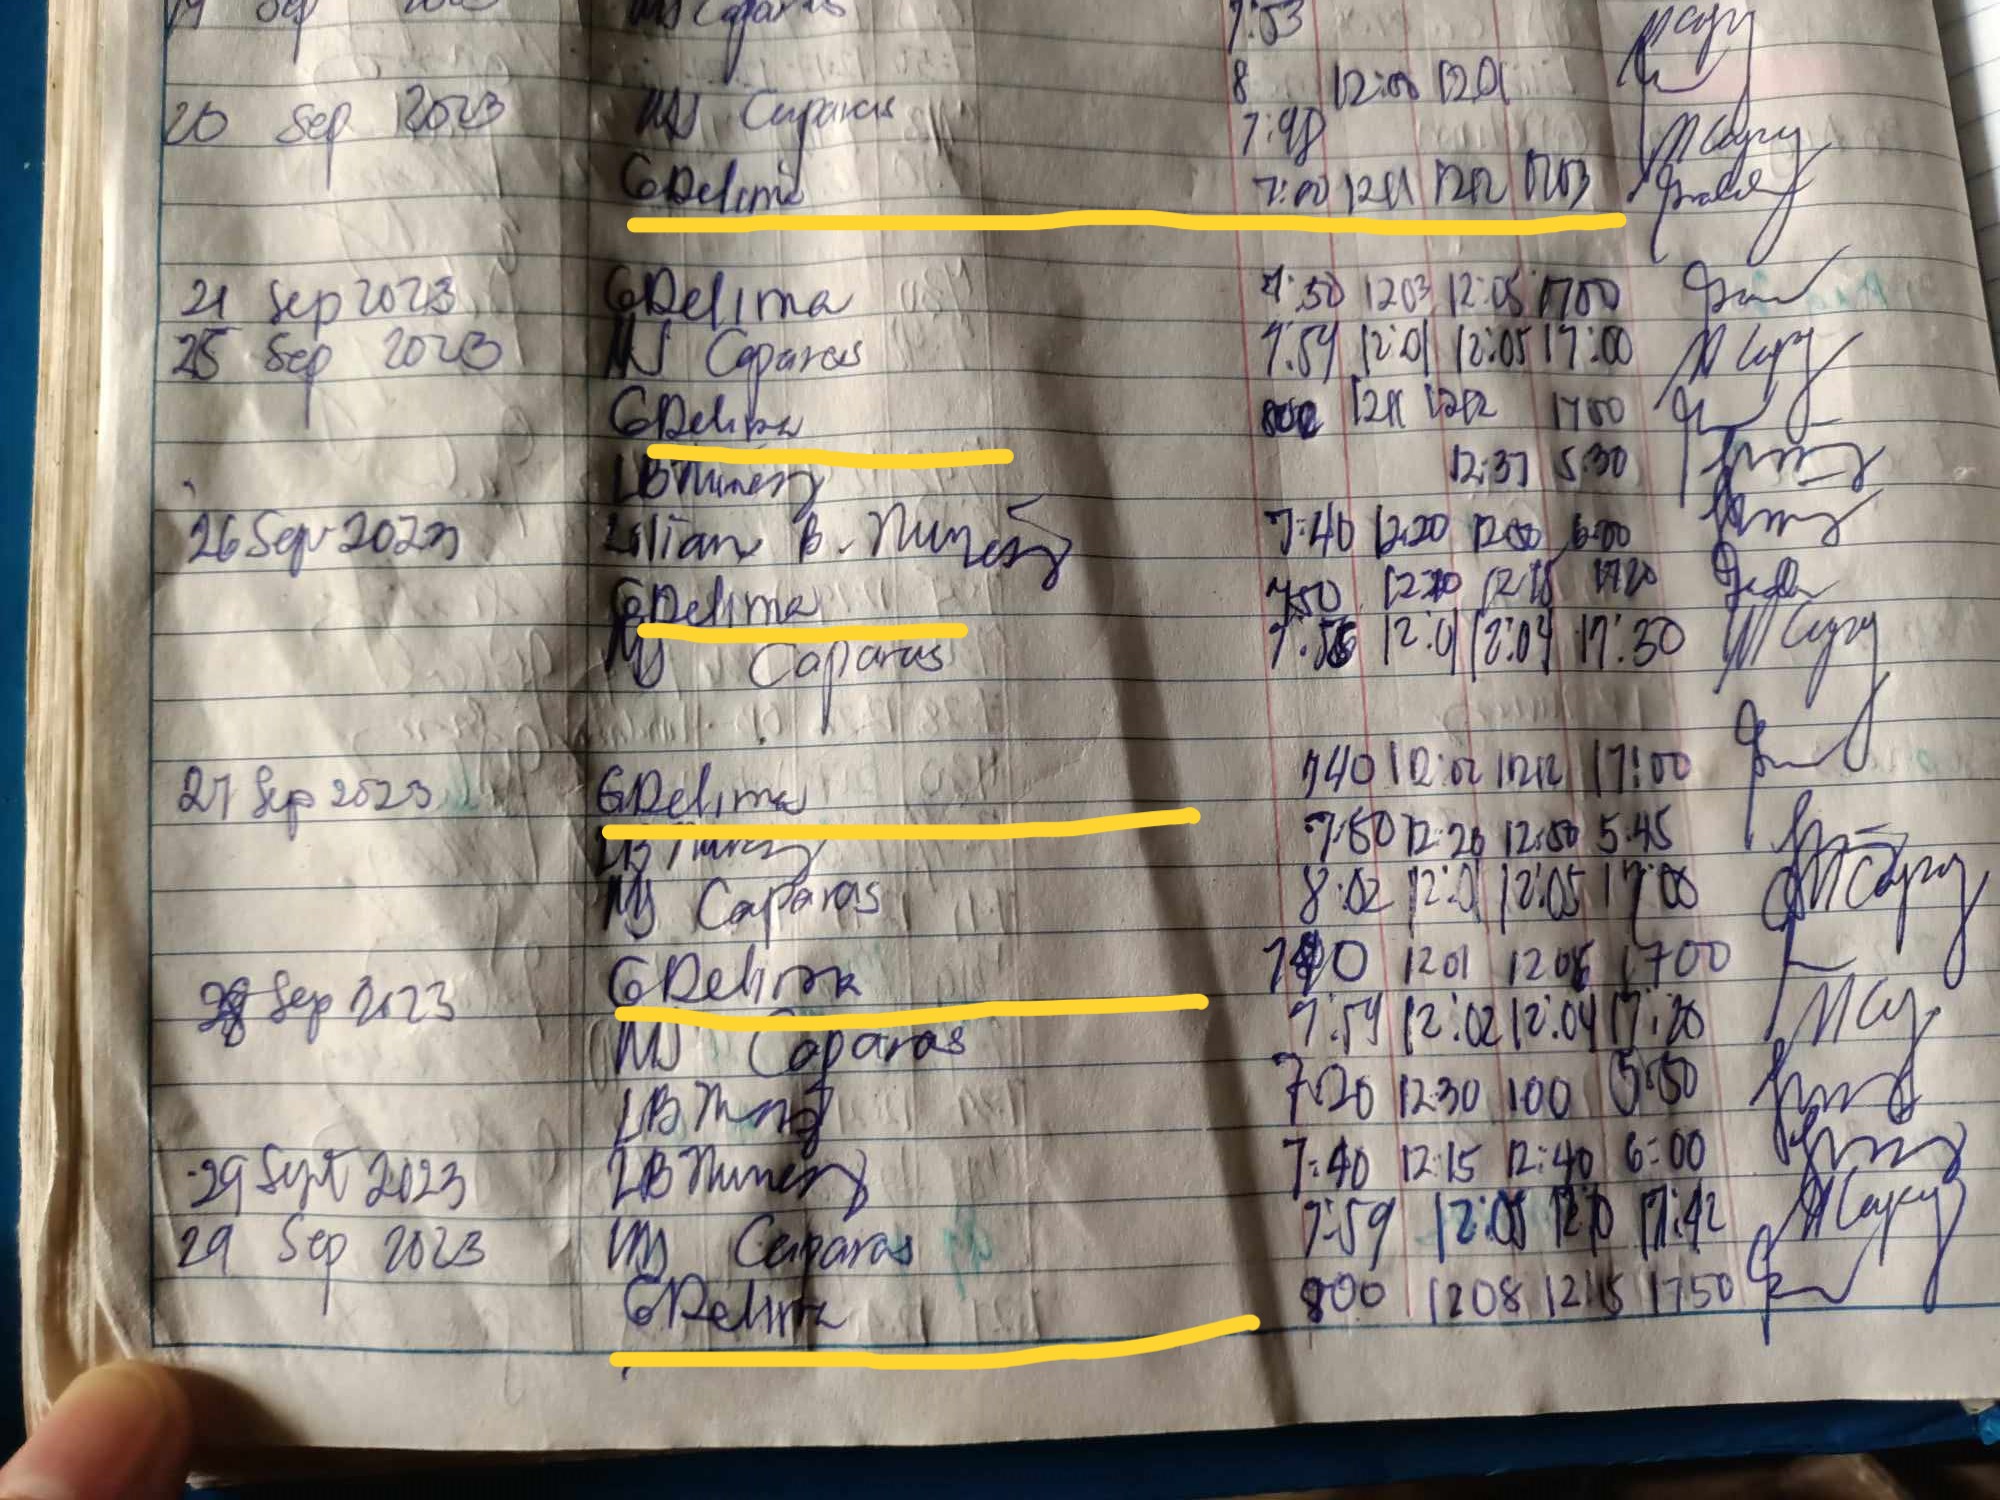 19 Sep 2023 MJ Caparas 7:53
8 12:00 1201
20 Sep 2023 MJ Caparas 7:48
GDelima 7:00 1211 1212 1703
21 Sep 2023 GDelima 7:50 1203 12:05 1700
25 Sep 2023 MJ Caparas 7:59 12:01 12:05 17:00
GDelima 1211 1212 1700
LBNunez 12:37 5:30
26 Sep 2023 Lilian B. Nunez 7:40 12:20 12:50 6:00
GDelima 750 1210 1215 1720
MJ Caparas 7:56 12:01 12:04 17:30
27 Sep 2023 GDelima 740 12:02 1212 17:00
LB Nunez 7:50 12:20 12:50 5:45
MJ Caparas 8:02 12:01 12:05 17:00
28 Sep 2023 GDelima 740 1201 1205 1700
MJ Caparas 7:59 12:02 12:04 17:20
LB Nunez 7:20 12:30 100 5:50
29 Sept 2023 LBNunez 7:40 12:15 12:40 6:00
29 Sep 2023 MJ Caparas 7:59 12:05 12:10 17:42
GDelima 800 1208 1215 1750